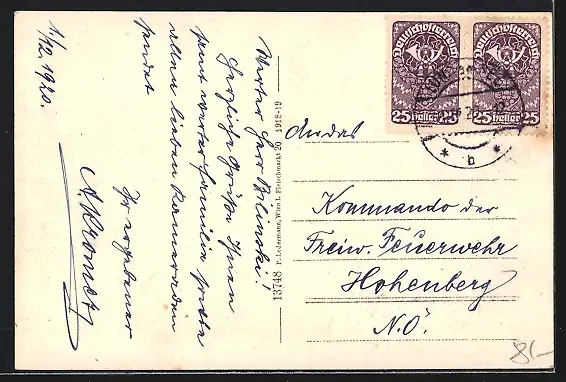 1./12. 1920.
Werter Herr Bilinski!
Herzliche Grüße Ihnen
samt werter Familie sowie
allen lieben Kameraden
sendet
Ihr ergebener
A. Kromer
13748 P. Ledermann, Wien I. Fleischmarkt 20 1918-19
Deutschösterreich
25 Heller 25
Deutschösterreich
25 Heller 25
* b *
An das
Kommando der
Freiw. Feuerwehr
Hohenberg
N.Ö.
8/-